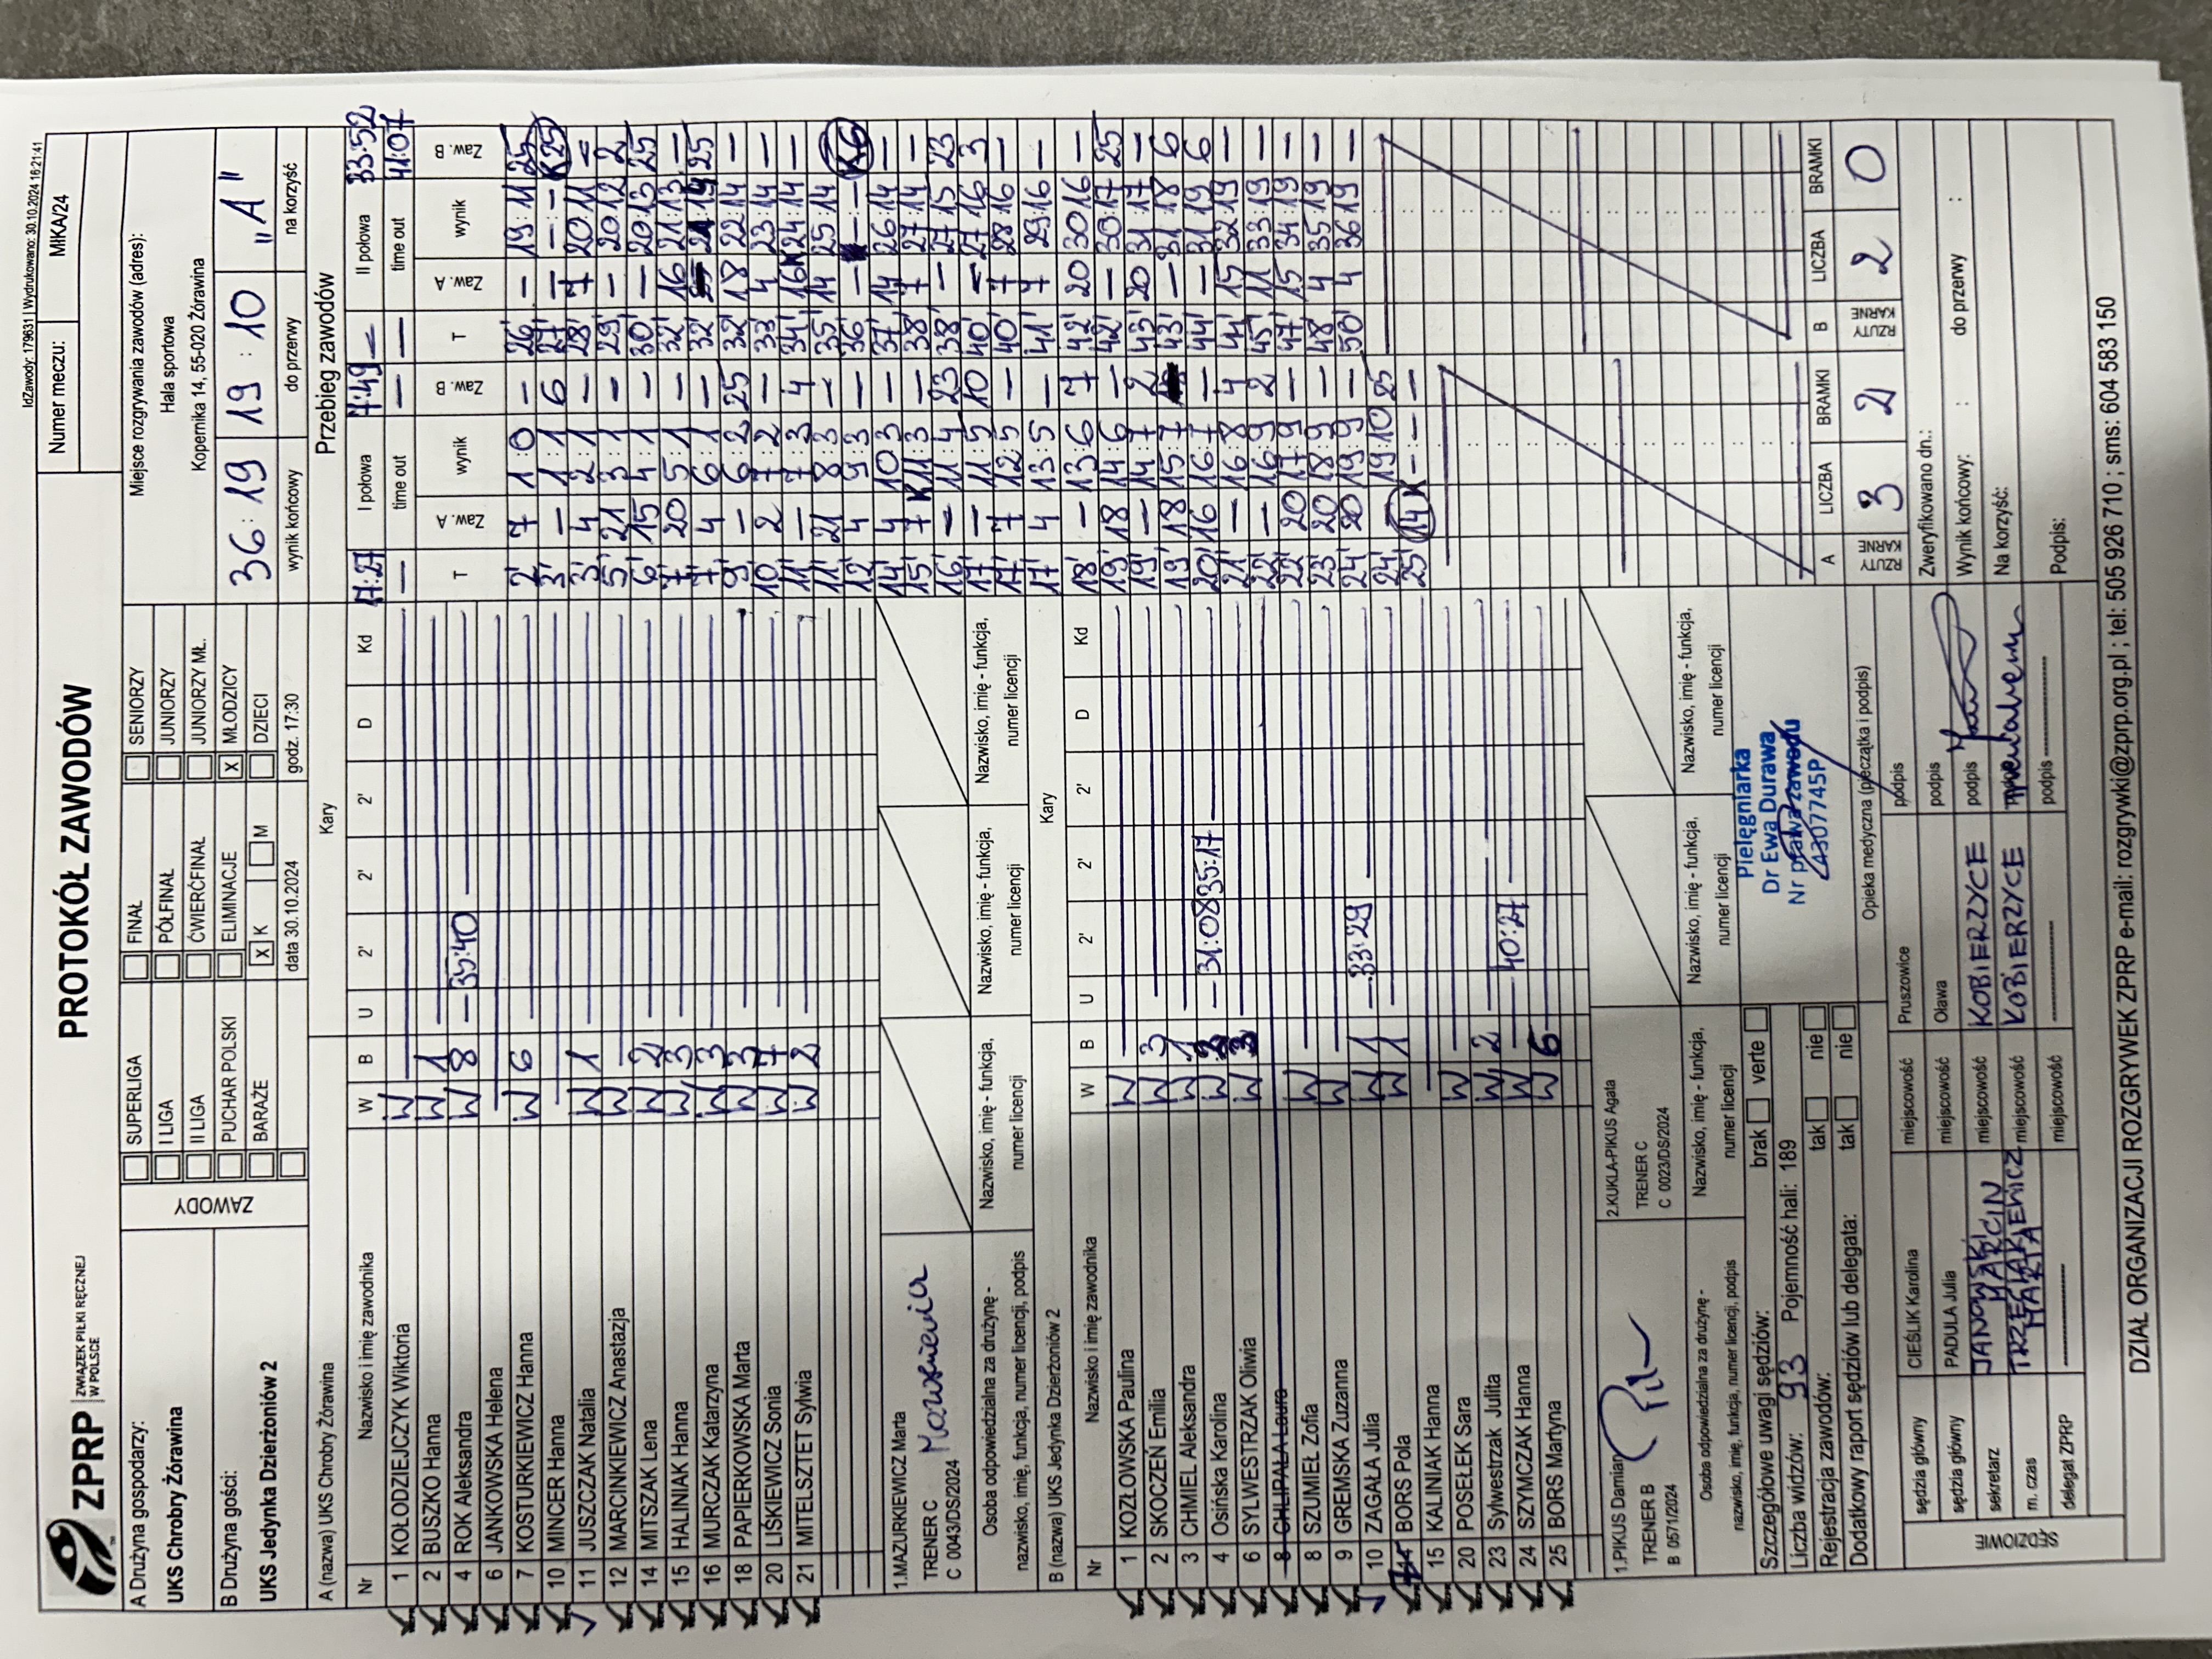 IdZawody: 179631 | Wydrukowano: 30.10.2024 16:21:41
ZPRP ZWIĄZEK PIŁKI RĘCZNEJ W POLSCE
PROTOKÓŁ ZAWODÓW
Numer meczu: MIKA/24
A Drużyna gospodarzy:
UKS Chrobry Żórawina
B Drużyna gości:
UKS Jedynka Dzierżoniów 2
ZAWODY
SUPERLIGA
I LIGA
II LIGA
PUCHAR POLSKI
BARAŻE
FINAŁ
PÓŁFINAŁ
ĆWIERĆFINAŁ
ELIMINACJE
X K M
SENIORZY
JUNIORZY
JUNIORZY MŁ.
X MŁODZICY
DZIECI
data 30.10.2024 godz. 17:30
Miejsce rozgrywania zawodów (adres):
Hala sportowa
Kopernika 14, 55-020 Żórawina
36 : 19 19 : 10 „A"
wynik końcowy do przerwy na korzyść
A (nazwa) UKS Chrobry Żórawina Kary
Nr Nazwisko i imię zawodnika W B U 2' 2' 2' D Kd
1 KOŁODZIEJCZYK Wiktoria W
2 BUSZKO Hanna W 1
4 ROK Aleksandra W 8 35:40
6 JANKOWSKA Helena
7 KOSTURKIEWICZ Hanna W 6
10 MINCER Hanna
11 JUSZCZAK Natalia W 1
12 MARCINKIEWICZ Anastazja W
14 MITSZAK Lena W 2
15 HALINIAK Hanna W 3
16 MURCZAK Katarzyna W 3
18 PAPIERKOWSKA Marta W 3
20 LIŚKIEWICZ Sonia W 7
21 MITELSZTET Sylwia W 2
1.MAZURKIEWICZ Marta
TRENER C
C 0043/DS/2024
Osoba odpowiedzialna za drużynę - nazwisko, imię, funkcja, numer licencji, podpis
Nazwisko, imię - funkcja, numer licencji
Nazwisko, imię - funkcja, numer licencji
Nazwisko, imię - funkcja, numer licencji
B (nazwa) UKS Jedynka Dzierżoniów 2 Kary
Nr Nazwisko i imię zawodnika W B U 2' 2' 2' D Kd
1 KOZŁOWSKA Paulina W
2 SKOCZEŃ Emilia W 3
3 CHMIEL Aleksandra W 1
4 Osińska Karolina W 31:08 35:17
6 SYLWESTRZAK Oliwia W 3
8 CHLIPAŁA Laura
8 SZUMIEŁ Zofia W
9 GREMSKA Zuzanna W
10 ZAGAŁA Julia W 1 33:29
BORS Pola W 1
15 KALINIAK Hanna
20 POSEŁEK Sara W
23 Sylwestrzak Julita W 2
24 SZYMCZAK Hanna W 40:27
25 BORS Martyna W 6
1.PIKUS Damian
TRENER B
B 0571/2024
2.KUKLA-PIKUS Agata
TRENER C
C 0023/DS/2024
Osoba odpowiedzialna za drużynę - nazwisko, imię, funkcja, numer licencji, podpis
Nazwisko, imię - funkcja, numer licencji
Nazwisko, imię - funkcja, numer licencji
Nazwisko, imię - funkcja, numer licencji
Szczegółowe uwagi sędziów: brak verte
Liczba widzów: 93 Pojemność hali: 189
Rejestracja zawodów: tak nie
Dodatkowy raport sędziów lub delegata: tak nie
Pielęgniarka
Dr Ewa Durawa
Nr prawa zawodu
4307745P
Opieka medyczna (pieczątka i podpis)
SĘDZIOWIE
sędzia główny CIEŚLIK Karolina miejscowość Pruszowice podpis
sędzia główny PADUŁA Julia miejscowość Oława podpis
sekretarz JANOWSKI MARCIN miejscowość KOBIERZYCE podpis
m. czas TRZECIAKIEWICZ MARTA miejscowość KOBIERZYCE podpis
delegat ZPRP miejscowość podpis
Przebieg zawodów
17:27 I połowa 7:49 — II połowa 33:52
— time out — — time out 41:07
T Zaw. A wynik Zaw. B T Zaw. A wynik Zaw. B
2' 7 1:0 — 26' — 19:11 25
3' — 1:1 6 27' — -:- K25
3' 4 2:1 — 28' 7 20:11 —
5' 21 3:1 — 29' — 20:12 2
6' 15 4:1 — 30' — 20:13 25
7' 20 5:1 — 32' 16 21:13 —
7' 4 6:1 — 32' 21:14 25
9' — 6:2 25 32' 18 22:14 —
10' 2 7:2 — 33' 4 23:14 —
11' — 7:3 4 34' 16K 24:14 —
11' 21 8:3 — 35' 14 25:14 —
12' 4 9:3 — 36' — -:- K6
14' 4 10:3 — 37' 14 26:14 —
15' 7K 11:3 — 38' 7 27:14 —
16' — 11:4 23 38' — 27:15 23
17' — 11:5 10 40' — 27:16 3
17' 7 12:5 — 40' 7 28:16 —
17' 4 13:5 — 41' 7 29:16 —
18' — 13:6 7 42' 20 30:16 —
19' 18 14:6 — 42' — 30:17 25
19' — 14:7 2 43' 20 31:17 —
19' 18 15:7 43' — 31:18 6
20' 16 16:7 — 44' — 31:19 6
21' — 16:8 4 44' 15 32:19 —
22' — 16:9 2 45' 11 33:19 —
22' 20 17:9 — 47' 15 34:19 —
23' 20 18:9 — 48' 4 35:19 —
24' 20 19:9 — 50' 4 36:19 —
24' 19:10 25
25' 14K -:- —
RZUTY KARNE A LICZBA BRAMKI RZUTY KARNE B LICZBA BRAMKI
3 2 2 0
Zweryfikowano dn.:
Wynik końcowy: : do przerwy :
Na korzyść:
Podpis:
DZIAŁ ORGANIZACJI ROZGRYWEK ZPRP e-mail: rozgrywki@zprp.org.pl ; tel: 505 926 710 ; sms: 604 583 150